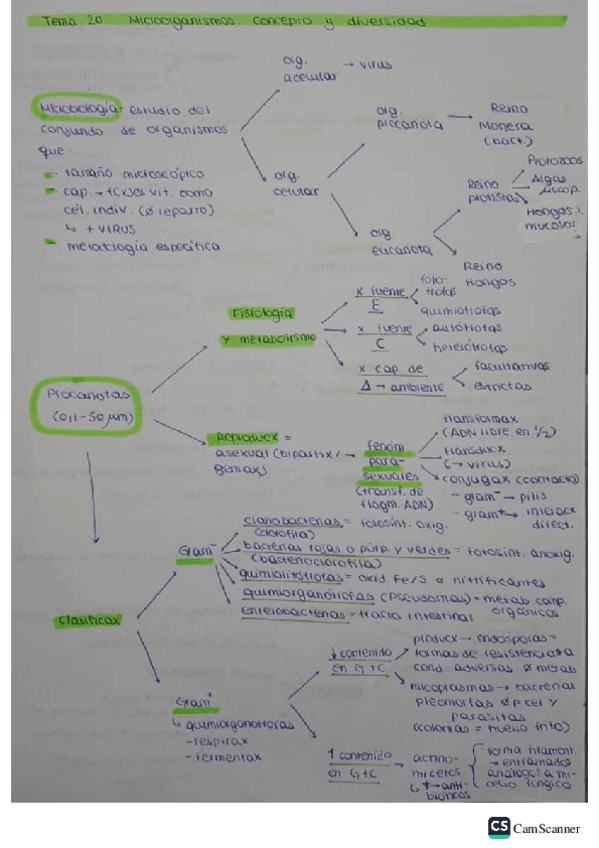 Tema 20 Microorganismos. Concepto y diversidad
Microbiología = estudio del
conjundo de organismos
que:
- tamaño microscópico
- cap. → f(x)es vit. como
cél. indiv. (Ø reparto)
↳ + VIRUS
- metodología específica
org.
acelular → virus
org.
celular
org.
procariota
Reino
Monera
(bact.)
org.
eucariota
Reino
protistas
Protozoos
Algas
microscóp.
Hongos
mucosos
Reino
Hongos
Procariotas
(0,1-50 µm)
Fisiología
y metabolismo
x fuente
E
foto-
trofas
quimiotrofas
x fuente
C
autótrofas
heterótrofas
x cap. de
Δ → ambiente
facultativas
estrictas
Reproducx =
asexual (bipartix /
gemax)
fenóm.
para-
sexuales
(transf. de
fragm. ADN)
transformax
(ADN libre en 1/2)
transducx
(→ virus)
conjugax (contacto)
- gram⁻ → pilis
- gram⁺ → interacx
direct.
Clasificax
Gram⁻
cianobacterias = fotosínt. oxig.
(clorofila)
bacterias rojas o púrp. y verdes = fotosínt. anoxig.
(bacterioclorofila)
quimiolitótrofas = oxid. Fe/S o nitrificantes
quimiorganótrofas (Pseudomas) = metab. comp.
orgánicos
enterobacterias = tracto intestinal
Gram⁺
↳ quimiorganotrofas
- respirax
- fermentax
↓ contenido
en G+C
producx → endosporas =
formas de resistencia a
cond. adversas Ø metab
micoplasmas → bacterias
pleomorfas Ø p cel y
parásitas
(colonias = huevo frito)
↑ contenido
en G+C
actino-
micetos
↳ * → anti-
bióticos
forma filament.
→ entramados
análogos a mi-
celio fúngico
CS CamScanner